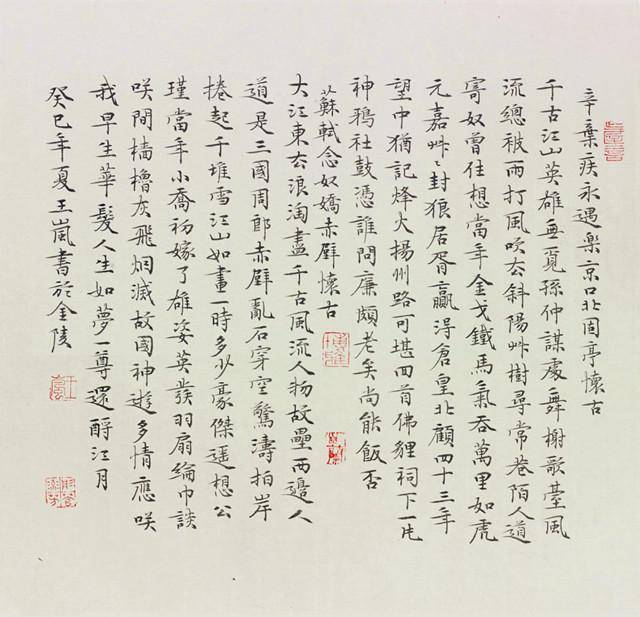 辛棄疾永遇樂京口北固亭懷古
千古江山英雄無覓孫仲謀處舞榭歌臺風
流總被雨打風吹去斜陽艸樹尋常巷陌人道
寄奴曾住想當年金戈鐵馬氣吞萬里如虎
元嘉艸〻封狼居胥贏得倉皇北顧四十三年
望中猶記烽火揚州路可堪回首佛貍祠下一片
神鴉社鼓憑誰問廉頗老矣尚能飯否
蘇軾念奴嬌赤壁懷古
大江東去浪淘盡千古風流人物故壘西邊人
道是三國周郎赤壁亂石穿空驚濤拍岸
捲起千堆雪江山如畫一時多少豪傑遥想公
瑾當年小喬初嫁了雄姿英發羽扇綸巾談
咲間檣櫓灰飛烟滅故國神遊多情應咲
我早生華髮人生如夢一尊還酹江月
癸巳年夏王嵐書於金陵